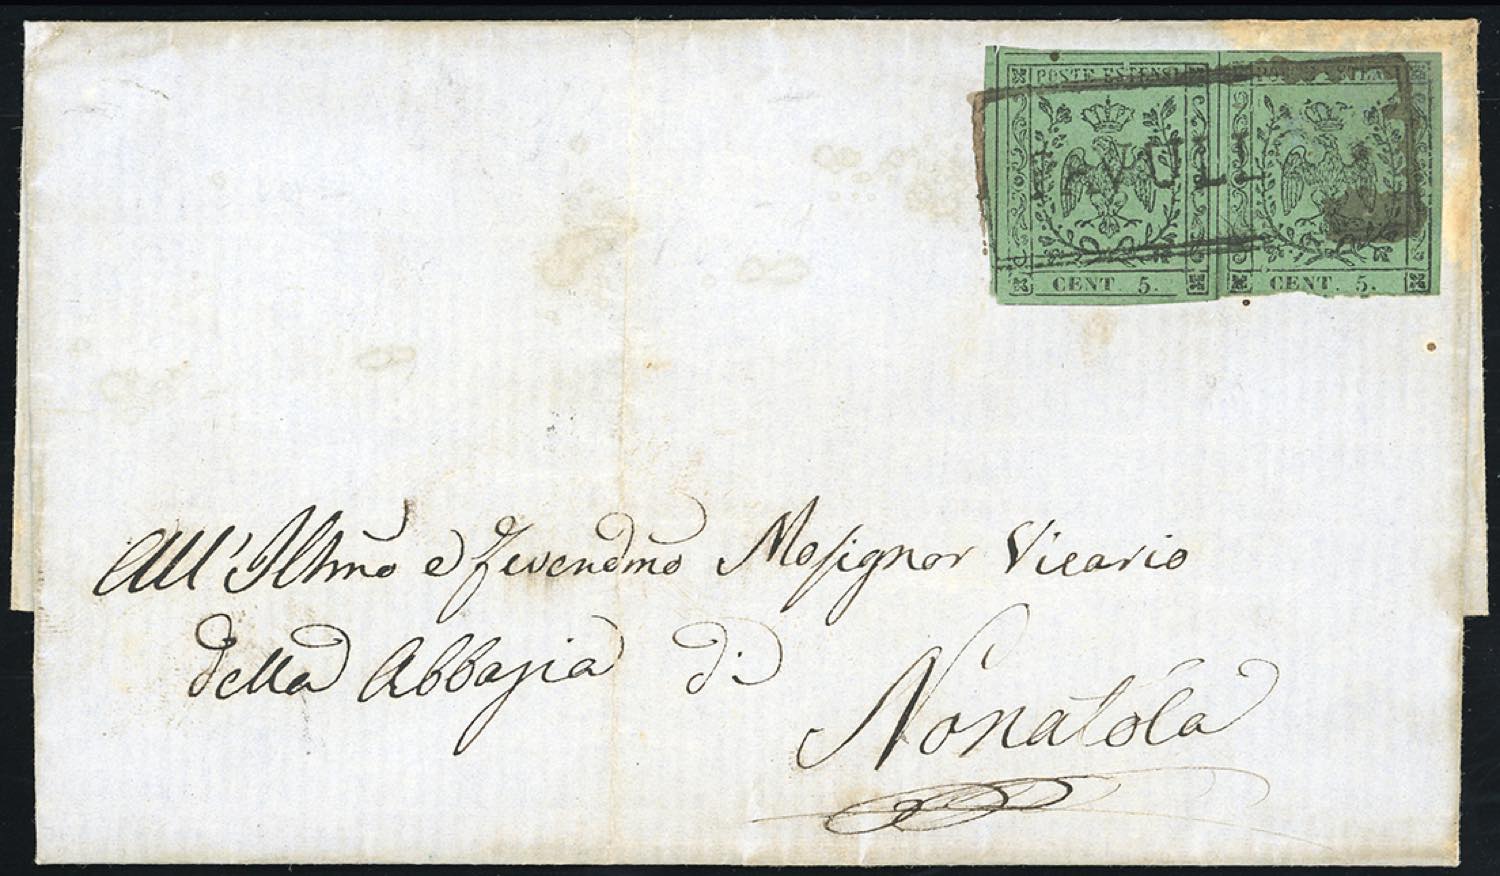 POSTE ESTENSI
CENT. 5.
CENT. 5.
All' Illmo e Revendmo Mosignor Vicario
della Abbazia di
Nonatola